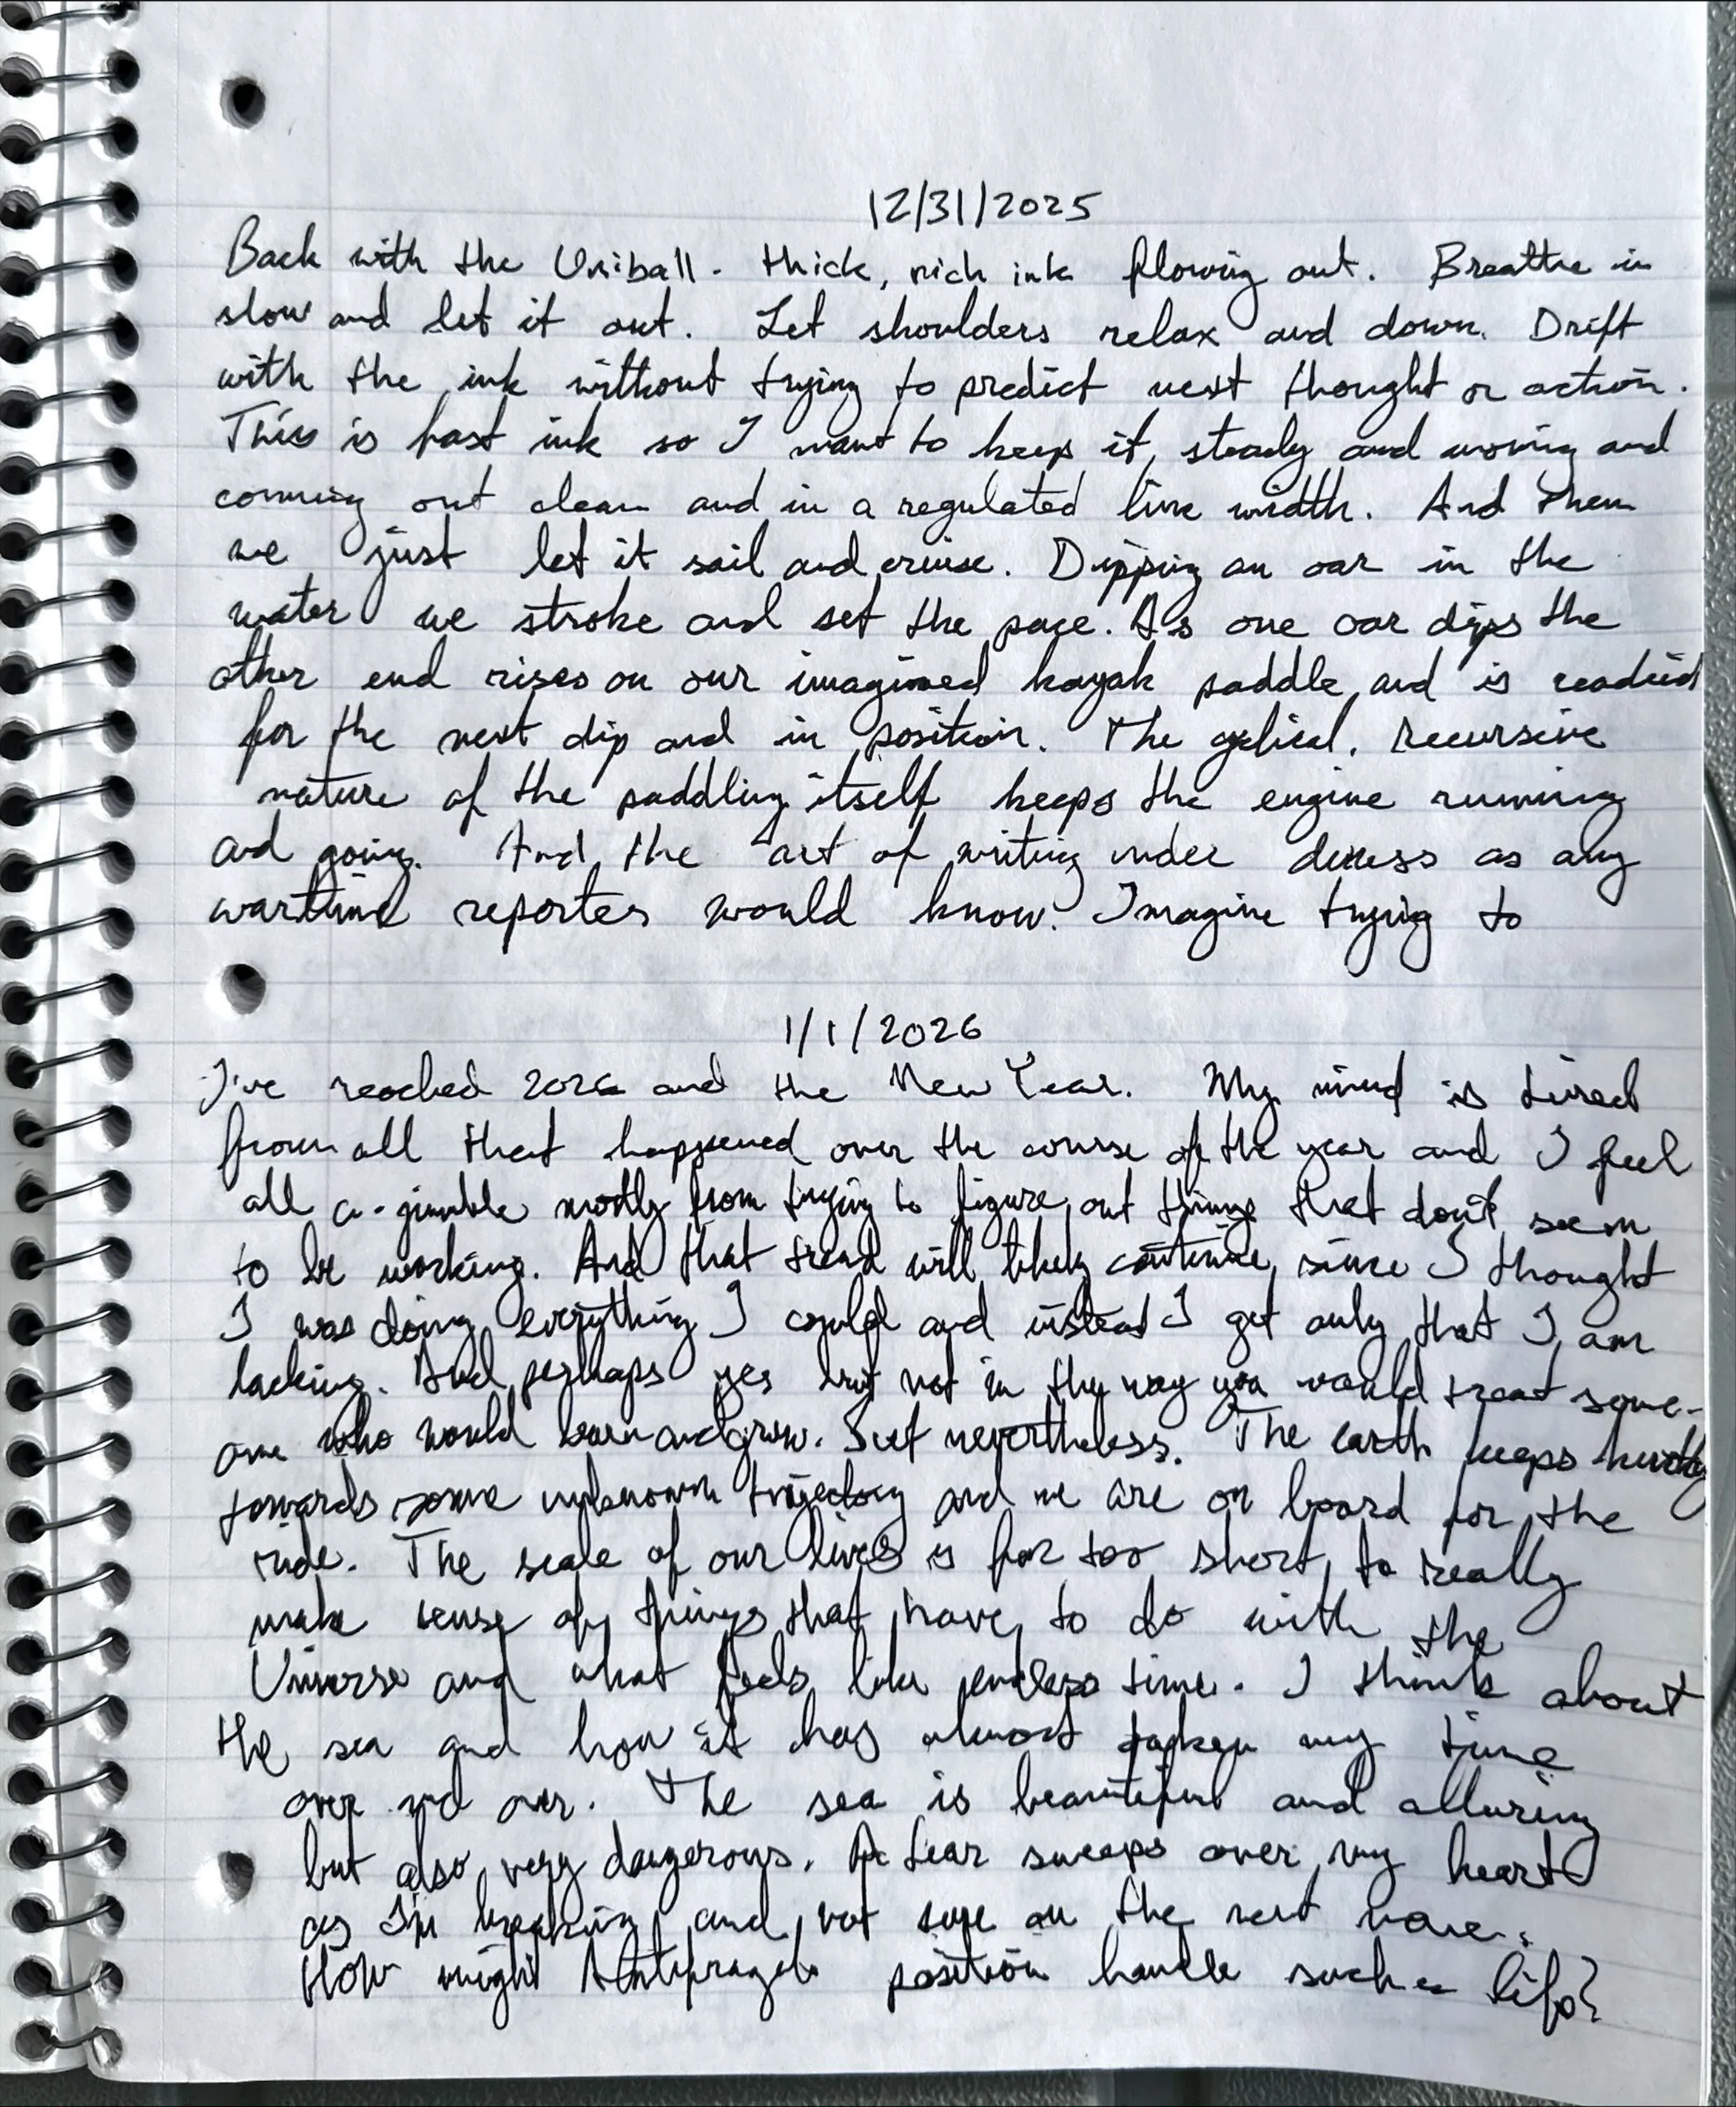 12/31/2025
Back with the Uniball. Thick, rich ink flowing out. Breathe in
slow and let it out. Let shoulders relax and down. Drift
with the ink without trying to predict next thought or action.
This is fast ink so I want to keep it steady and moving and
coming out clean and in a regulated line width. And then
we just let it sail and cruise. Dipping an oar in the
water we stroke and set the pace. As one oar dips the
other end rises on our imagined kayak paddle and is readied
for the next dip and in position. The cyclical, recursive
nature of the paddling itself keeps the engine running
and going. And the art of writing under duress as any
wartime reporter would know. Imagine trying to
1/1/2026
I've reached 2026 and the New Year. My mind is tired
from all that happened over the course of the year and I feel
all a-jumble mostly from trying to figure out things that don't seem
to be working. And that trend will likely continue, since I thought
I was doing everything I could and instead I get only that I am
lacking. And perhaps yes but not in the way you would treat some-
one who would learn and grow. But nevertheless. The earth keeps
towards some unknown trajectory and we are on board for the
ride. The scale of our lives is far too short to really
make sense of things that have to do with the
Universe and what feels like endless time. I think about
the sea and how it has almost taken my time
over and over. The sea is beautiful and alluring
but also very dangerous. A fear sweeps over my heart
as I'm and not sure on the next
How might position handle such a life?